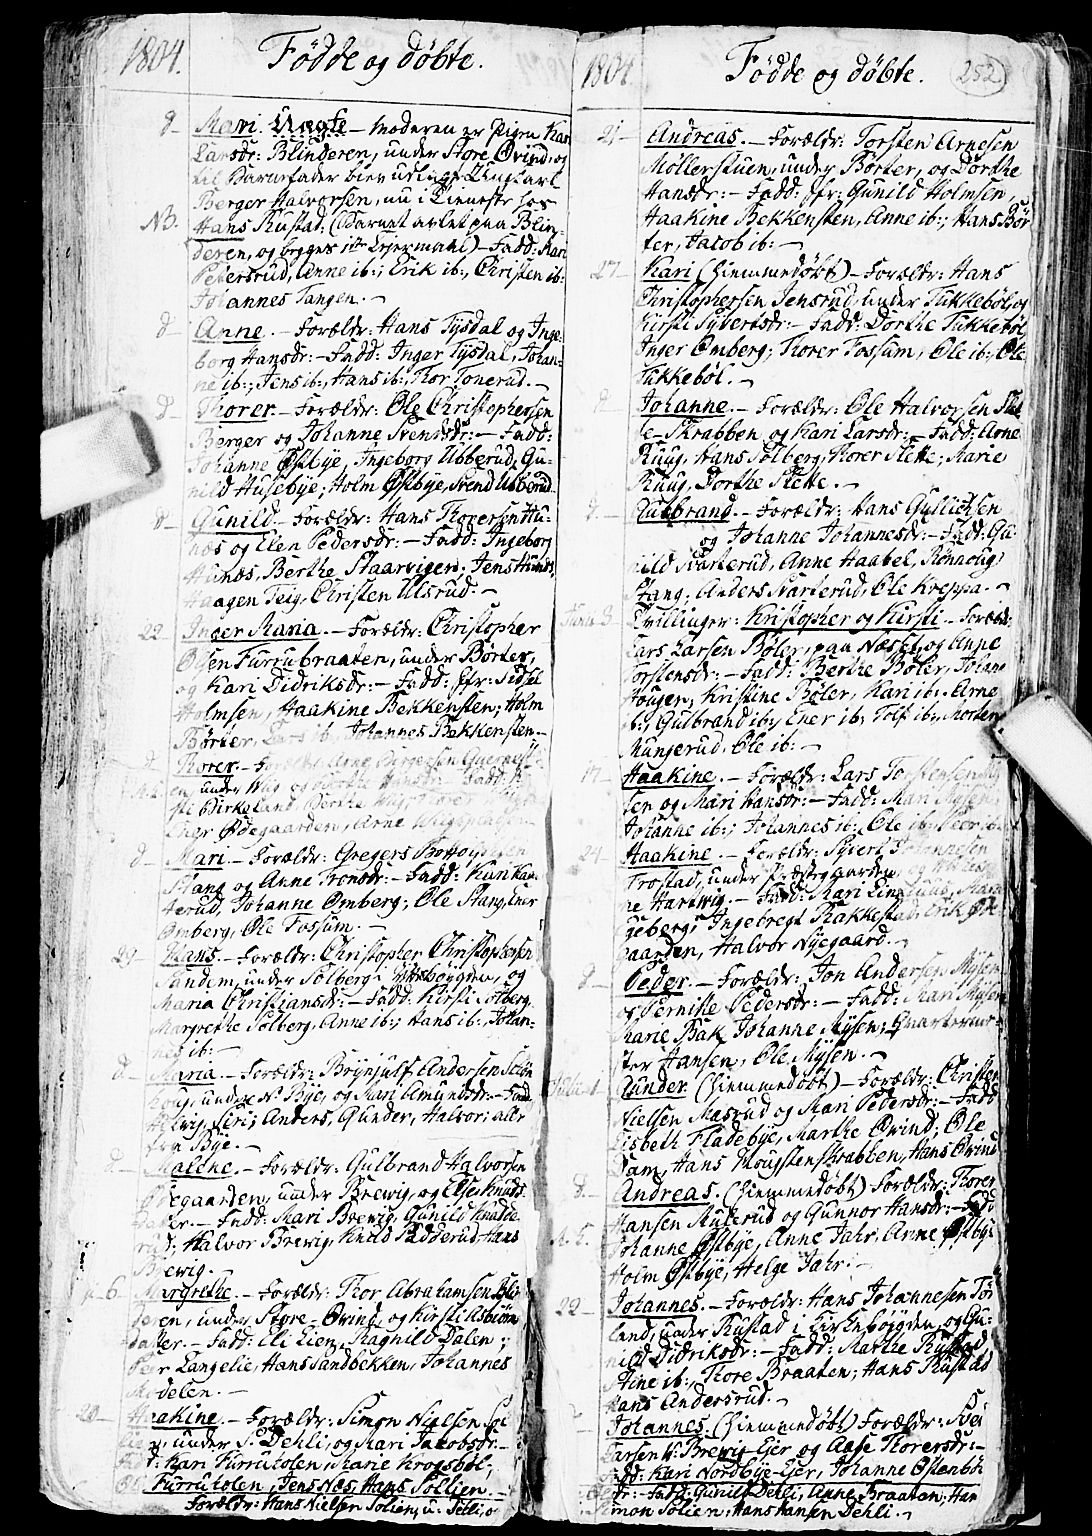 1804. Födde og döbte.
d- Mari. Uægte - Moderen er Pigen Kari
Larsdr: Blinderen, under Store Övind, og
til Barnefader blev udlagt Ungkarl
Berger Halvorsen, nu i Tieneste hos
NB. Hans Rustad. (Barnet avlet paa Blin-
deren, og begges 1ste Leiermaal) - Fadd: Mari
Petersrud, Anne ib:, Erik ib:, Christen ib:
Johannes Tangen. -
d- Anne. - Forældr: Hans Tysdal og Inge-
borg Hansdr: - Fadd: Inger Tysdal, Johan-
ne ib:, Jens ib:, Hans ib:, Thor Tonerud. -
d- Thorer. - Forældr: Ole Christophersen
Berger og Johanne Svendsdr: - Fadd:
Johanne Østbye, Ingeborg Ubberud, Gu-
nild Husebye; Holm Østbye, Svend Ubberud
d- Gunild. - Forældr: Hans Thorersen Hu-
næs og Elen Pedersdr: - Fadd: Ingeborg
Hunæs, Berthe Staarvigen; Jens Hunæs,
Haagen Teig, Christen Ulsrud. -
22 Inger Maria. - Forældr: Christopher
Olsen Furrubraaten, under Börter,
og Kari Didriksdr: - Fadd: Jfr: Sidsel
Holmsen, Haakine Bekkensten; Holm
Börter, Lars ib: Johannes Bekkensten -
d. Thorer. - Forældr: Arne Birgersen
en, under Wiig og Berthe Hansdr: - Fadd:
Birkeland, Berthe Wiig, Thorer
Ödegaarden, Arne
d. Mari. - Forældr: Gregers
Stang og Anne Tronsdr: - Fadd: Kari
terud, Johanne Omberg; Ole Stang, Ener
Omberg, Ole Fossum. -
29- Hans. - Forældr: Christopher Christophersen
Sandem, under Solberg i og
Maria Christiansdr: - Fadd: Kirsti Solberg,
Margrethe Solberg, Anne ib:; Hans ib:, Johan-
nes ib: -
d- Maria. - Forældr: Brynjulf Andersen
under N. Bye, og Mari Amundsdr: - Fadd:
Helvig, Siri; Anders, Gunder, Halvor; alle
fra Bye. -
d. Malene. - Forældr: Gulbrand Halvorsen
Ödegaarden, under Brevig, og Else Knuds-
datter. - Fadd: Mari Brevig, Gunild
rud; Halvor Brevig, Knud Padderud, Hans
Brevig. -
6 Margrethe. - Forældr: Thor Abrahamsen Blin-
deren, under Store-Övind, og Kirsti Asbiörns
datter. - Fadd: Eli Lien, Ragnild Dalen;
Peer Langelie, Hans Sandbekken, Johannes
Modelen. -
20- Haakine. - Forældr: Simon Nielsen Sol
lien, under S. Dehli, og Mari Jacobsdr: -
Fadd: Kari Furruholen, Marie Krogsböl;
Ole Furruholen, Jens Næs, Hans Sollien. -
Forældr: Hans Nielsen Solien, u: Dehli, og
1804. Födde og döbte. 252
21- Andreas. - Forældr: Torsten Arnesen
Möllerstuen, under Börter, og Dorthe
Hansdr: - Fadd: Jfr: Gunild Holmsen,
Haakine Bekkensten, Anne ib:, Hans Bör-
ter, Jacob ib: -
27- Kari (hiemmedöbt) - Forældr: Hans
Christophersen Jensrud, under Tukkebøl, og
Kirsti Syvertsdr: - Fadd: Dorthe Tukkeböl
Inger Omberg; Thorer Fossum, Ole ib:, Ole
Tukkeböl. -
d. Johanne. - Forældr: Ole Halvorsen Slet-
te-Skrabben og Kari Larsdr: - Fadd: Anne
Ruug, Hans Solberg, Thorer Slette; Marie
Ruug, Dorthe Slette. -
d. Gulbrand. - Forældr: Hans Gullichsen
og Johanne Johannesdr: - Fadd: Gu-
nild Svarterud, Anne Haabøl, Rönnoug
Stang, Anders Svarterud, Ole Kreppa. -
3. Tvillinger: Kristopher og Kirsti. - Forældr:
Lars Larsen Böler, paa Næsset, og Anne
Torstensdr: - Fadd: Berthe Böler, Johanne
Hougen, Kristine Böler, Kari ib:, Arne
ib:, Gulbrand ib:, Ener ib:, Tolf ib:, Morten
Mungerud, Ole ib: -
17- Haakine. - Forældr: Lars Torstensen My
sen og Mari Hansdr: - Fadd: Mari Mysen,
Johanne ib:; Johannes ib:, Ole ib:, Peer ib:
24- Haakine. - Forældr: Syvert Johannesen
Trostad, under Præstegaarden,
ne Hartvig. - Fadd: Mari
geberg; Ingebregt Rakkestad, Erik Öde
gaarden, Halvor Nyegaard. -
8- Peder. - Forældr: Jon Andersen Mysen
og Pernille Pedersdr: - Fadd: Mari Mysen
Marie Bak, Johanne Mysen; Qvarteermes-
ter Hansen, Ole Mysen. -
Gunder (hiemmedöbt) - Forældr: Christen
Nielsen Masrud og Mari Pedersdr: - Fadd
Lisbeth Fladebye, Marthe Övind; Ole
Dam, Hans Mougstenskrabben, Hans Övind
d. Andreas. (hiemmedöbt) Forældr: Thorer
Hansen Mukerud og Gunnor Hansdr: - Fadd
Johanne Østbye, Anne Jahr, Anne Østbye
Holm Østbye, Helge Jahr. -
22- Johannes. - Forældr: Hans Johannesen
land, under Rustad i Kirkebøigden, og Gu-
nild Didriksdr: - Fadd: Marthe Rustad
Stine ib:, Thore Braaten; Hans Rustad
Hans Andersrud. -
Johannes. (hiemmedöbt) Forældr: Svei
Larsen V: Brevig-Eier og Aase Thorersdr: -
Fadd: Kari Nordbye-Eier, Johanne Østenbye
Fadd: Gunild Dehli, Anne Braaten, Han
Simon Solien, Hans Hansen Dehli. -